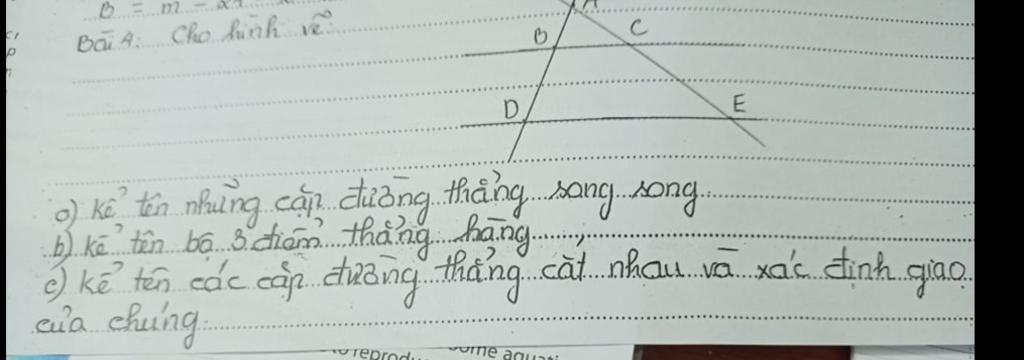 B = m -
Bài 4: Cho hình vẽ
A
B C
D E
a) Kể tên những cặp đường thẳng song song
b) kể tên bộ 3 điểm thẳng hàng
c) kể tên các cặp đường thẳng cắt nhau và xác định giao
của chúng